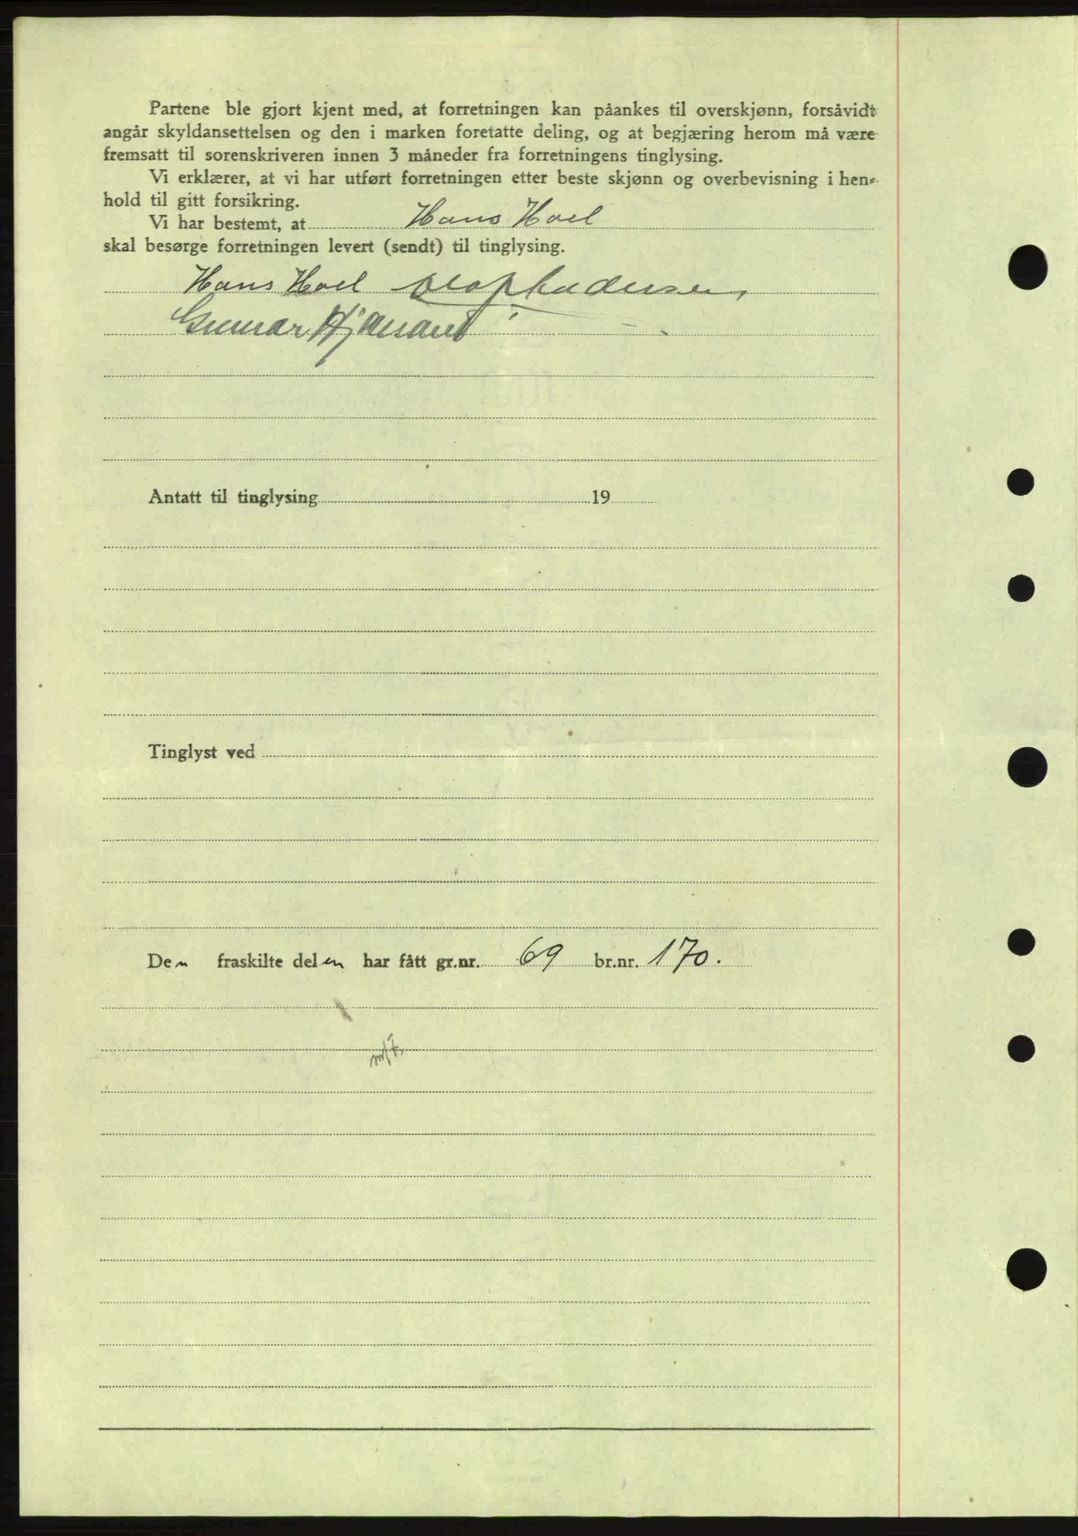 Partene ble gjort kjent med, at forretningen kan påankes til overskjønn, forsåvidt
angår skyldansettelsen og den i marken foretatte deling, og at begjæring herom må være
fremsatt til sorenskriveren innen 3 måneder fra forretningens tinglysing.
Vi erklærer, at vi har utført forretningen etter beste skjønn og overbevisning i hen-
hold til gitt forsikring.
Vi har bestemt, at Hans Hoel
skal besørge forretningen levert (sendt) til tinglysing.
Hans Hoel Olaf Andersen
Gunnar
Antatt til tinglysing 19
Tinglyst ved
Den fraskilte delen har fått gr.nr. 69 br.nr. 170.